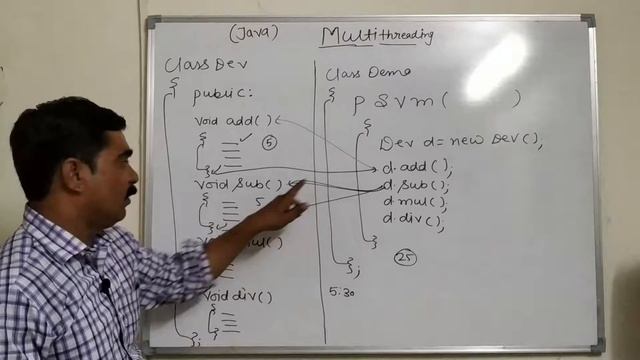 (Java) Multithreading
Class Dev
{
public:
void add()
{
5
}
void Sub()
{
5
}
mul()
void div()
{
}
};
Class Demo
{
p S v m ( )
{
Dev d = new Dev();
d.add();
d.sub();
d.mul();
d.div();
}
};
25
5:30